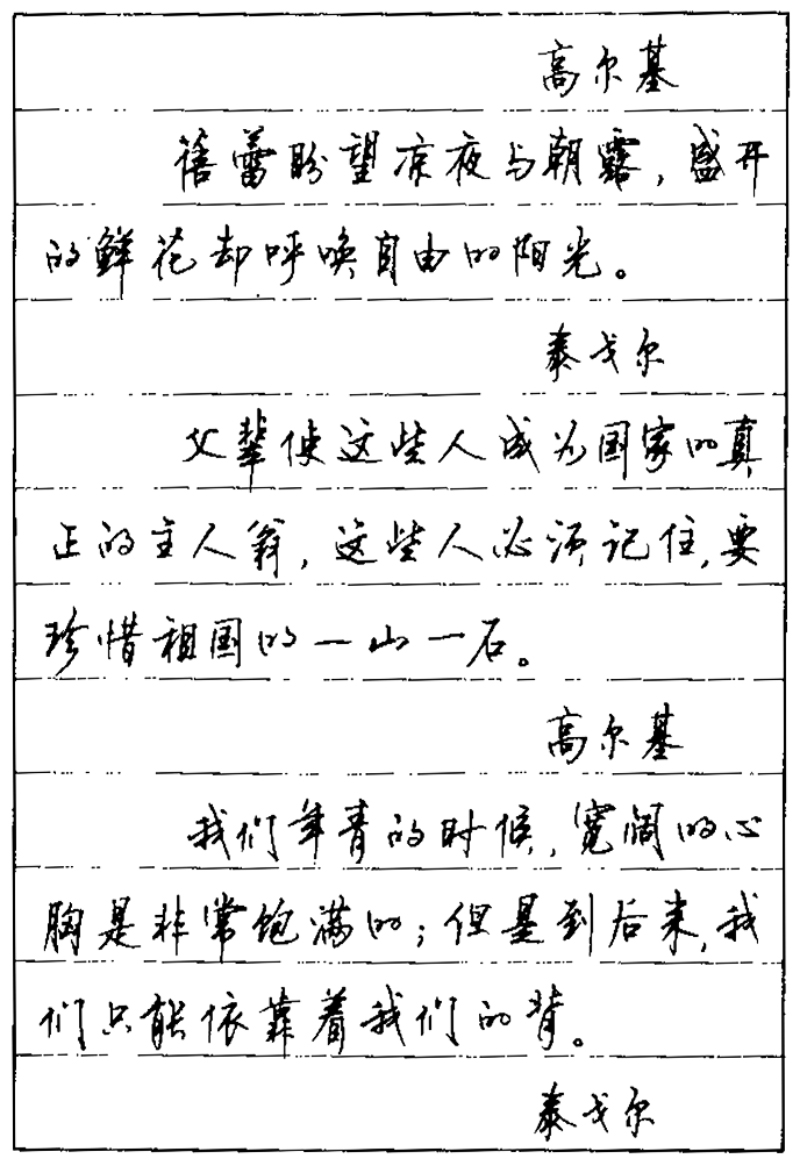 高尔基
蓓蕾盼望凉夜与朝露，盛开
的鲜花却呼唤自由的阳光。
泰戈尔
父辈使这些人成为国家的真
正的主人翁，这些人必须记住，要
珍惜祖国的一山一石。
高尔基
我们年青的时候，宽阔的心
胸是非常饱满的；但是到后来，我
们只能依靠着我们的背。
泰戈尔